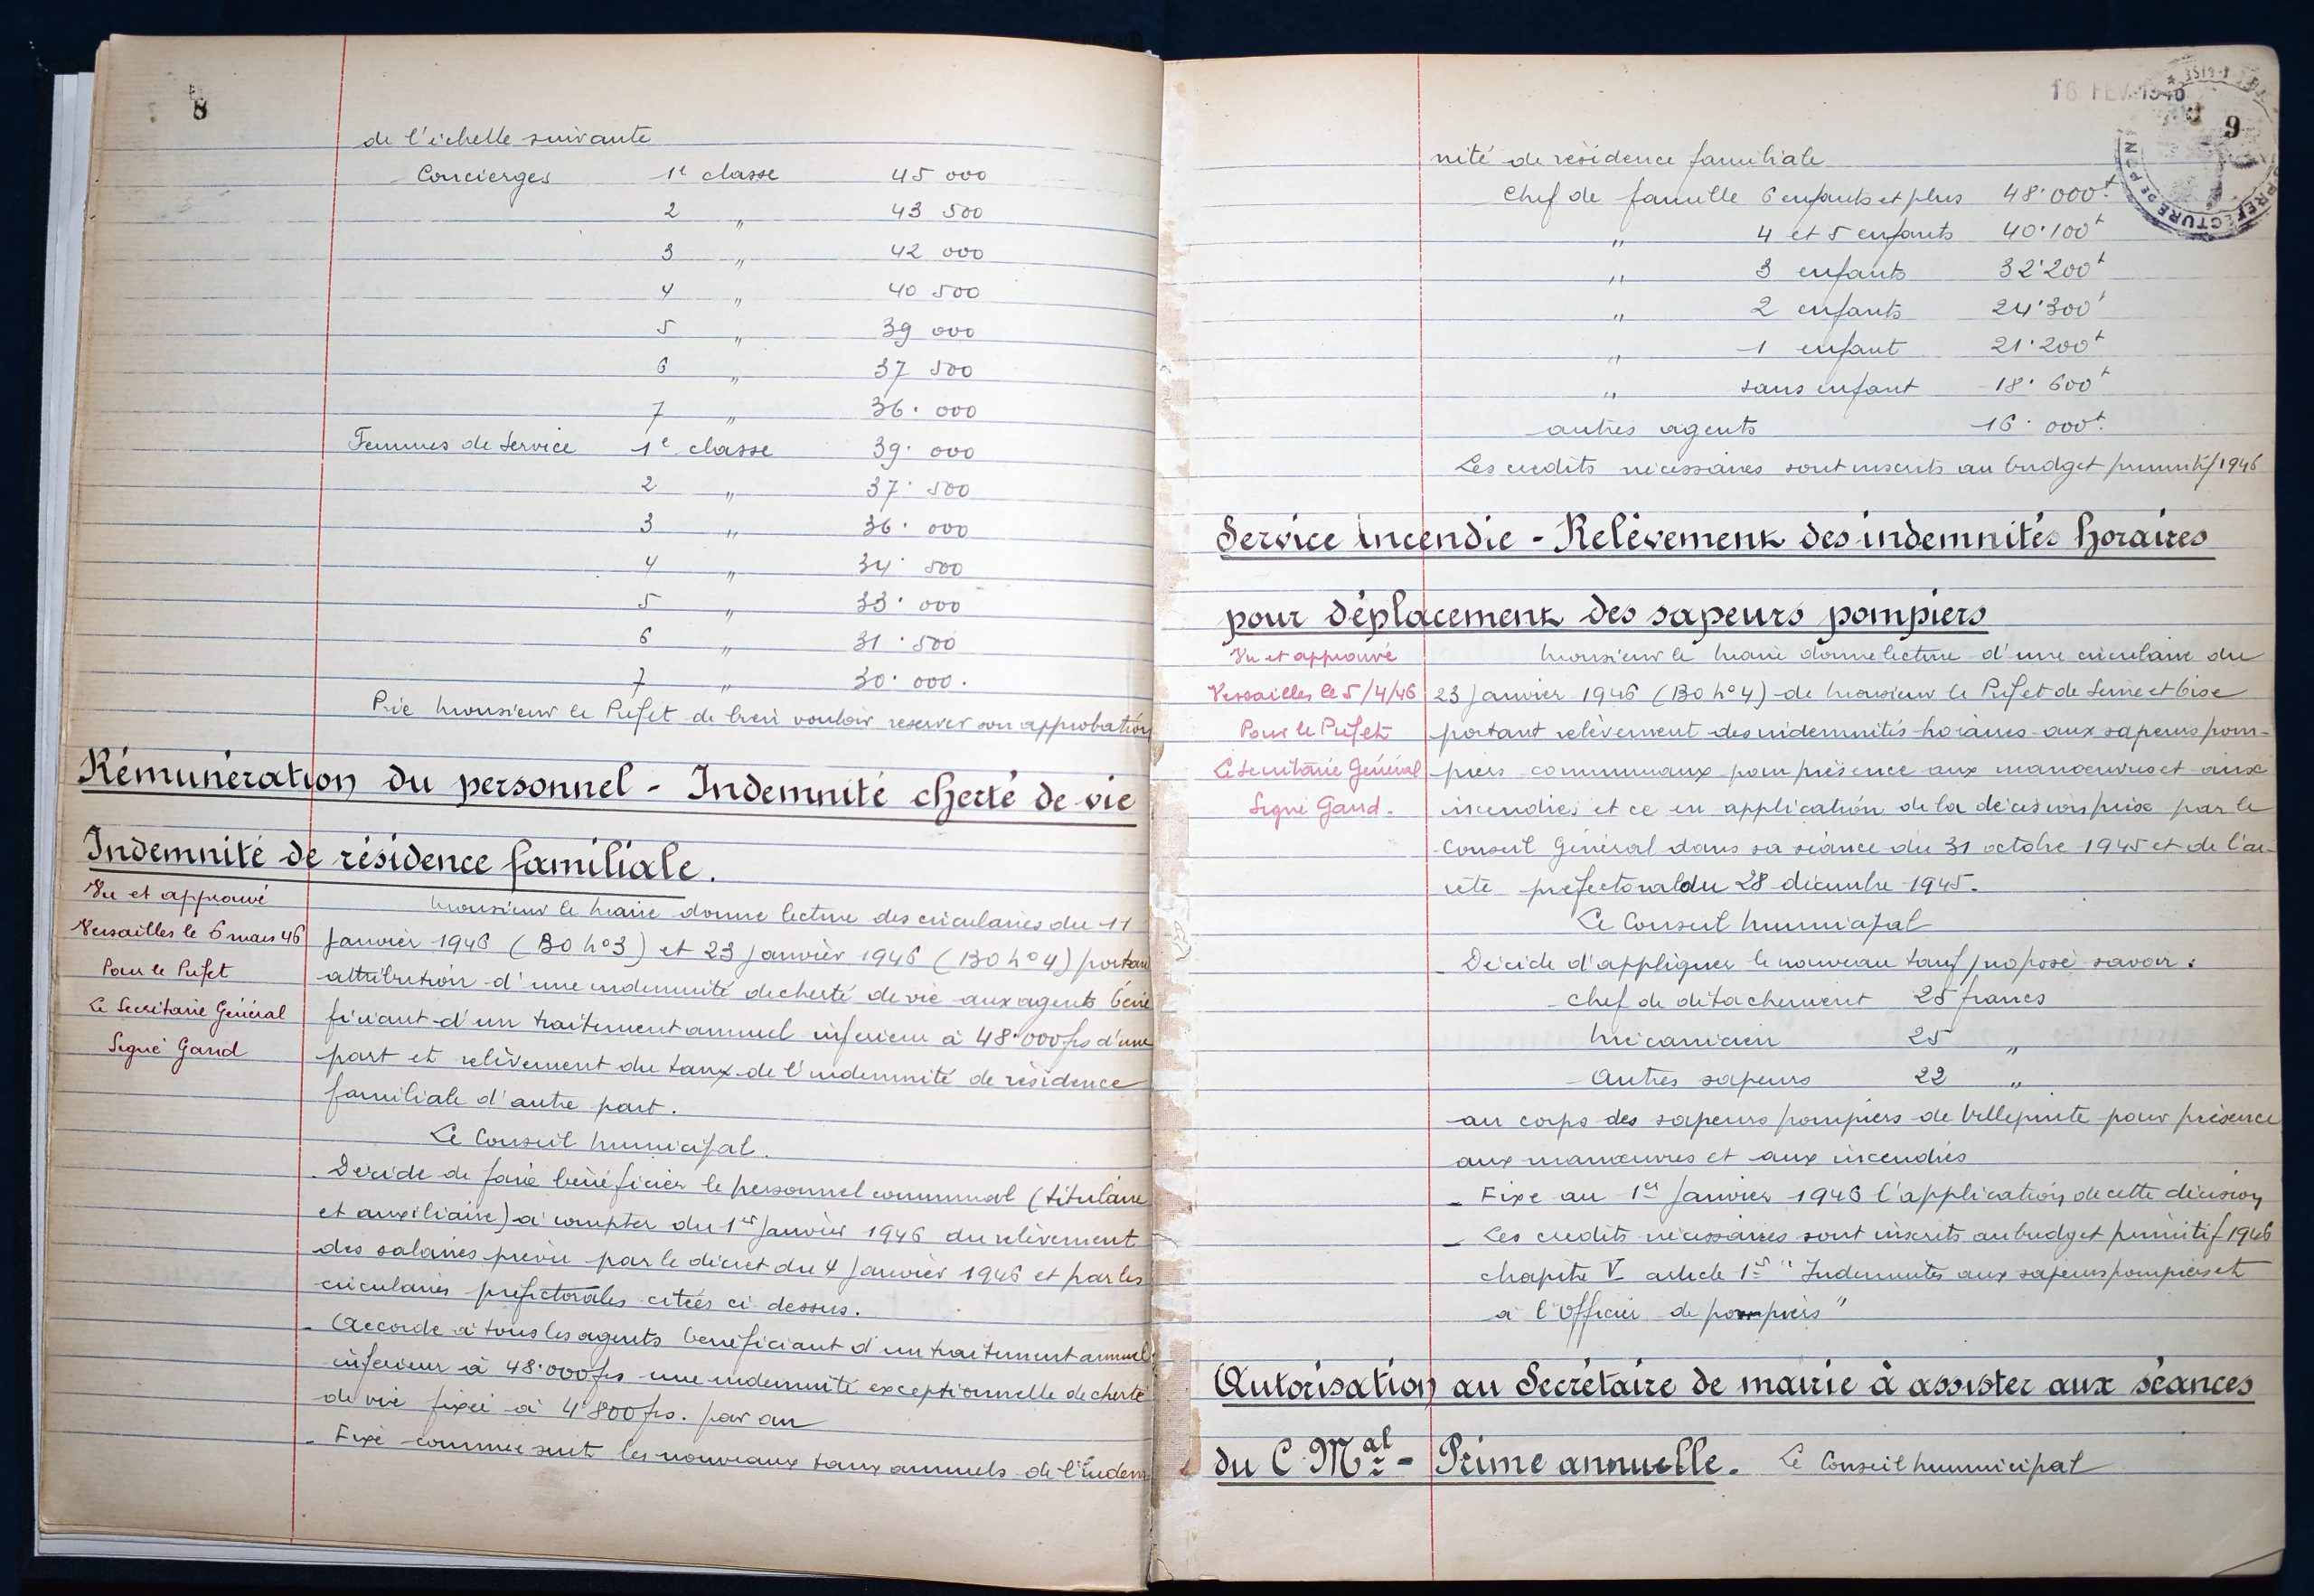 8
de l'échelle suivante
Concierges 1e classe 45 000
2 " 43 500
3 " 42 000
4 " 40 500
5 " 39 000
6 " 37 500
7 " 36.000
Femmes de Service 1e classe 39.000
2 " 37.500
3 " 36.000
4 " 34.500
5 " 33.000
6 " 31.500
7 " 30.000.
Prie Monsieur le Préfet de bien vouloir reserver son approbation
Rémunération du personnel - Indemnité cherté de vie
Indemnité de résidence familiale.
Vu et approuvé
Versailles le 6 mars 46
Pour le Préfet
Le Secrétaire Général
Signé Gand
Monsieur le Maire donne lecture des circulaires du 11
Janvier 1946 (BO No3) et 23 Janvier 1946 (BO No4) portant
attribution d'une indemnité de cherté de vie aux agents béné
ficiant d'un traitement annuel inférieur à 48.000frs d'une
part et relèvement du taux de l'indemnité de résidence
familiale d'autre part.
Le Conseil Municipal.
- Décide de faire bénéficier le personnel communal (titulaire
et auxiliaire) à compter du 1er Janvier 1946 du relèvement
des salaires prévu par le décret du 4 Janvier 1946 et par les
circulaires préfectorales citées ci dessus.
- Accorde à tous les agents bénéficiant d'un traitement annuel
inférieur à 48.000frs une indemnité exceptionnelle de cherté
de vie fixée à 4.800frs. par an
- Fixe comme suit les nouveaux taux annuels de l'Indem
16 FEV. 1946
9
nité de résidence familiale
Chef de famille 6 enfants et plus 48.000f
" 4 et 5 enfants 40.100f
" 3 enfants 32.200f
" 2 enfants 24.300f
" 1 enfant 21.200f
" sans enfant 18.600f
autres agents 16.000f.
Les credits nécessaires sont inscrits au budget primitif 1946
Service incendie - Relèvement des indemnités horaires
pour déplacement des sapeurs pompiers
Vu et approuvé
Versailles le 5/4/46
Pour le Préfet
Le Secrétaire Général
Signé Gand.
Monsieur le Maire donne lecture d'une circulaire du
23 Janvier 1946 (BO No4) de Monsieur le Préfet de Seine et Oise
portant relèvement des indemnités horaires aux sapeurs pom-
piers communaux pour présence aux manœuvres et aux
incendies et ce en application de la décision prise par le
Conseil Général dans sa séance du 31 octobre 1945 et de l'ar-
rêté préfectoral du 28 décembre 1945.
Le Conseil Municipal
- Décide d'appliquer le nouveau tarif proposé savoir :
Chef de détachement 25 francs
Mécanicien 25 "
Autres sapeurs 22 "
au corps des sapeurs pompiers de Villepinte pour présence
aux manœuvres et aux incendies
- Fixe au 1er Janvier 1946 l'application de cette décision
- Les credits nécessaires sont inscrits au budget primitif 1946
chapitre V article 1er "Indemnités aux sapeurs pompiers et
à l'Officier de pompiers"
Autorisation au Secrétaire de mairie à assister aux séances
du C Mal - Prime annuelle. Le Conseil Municipal